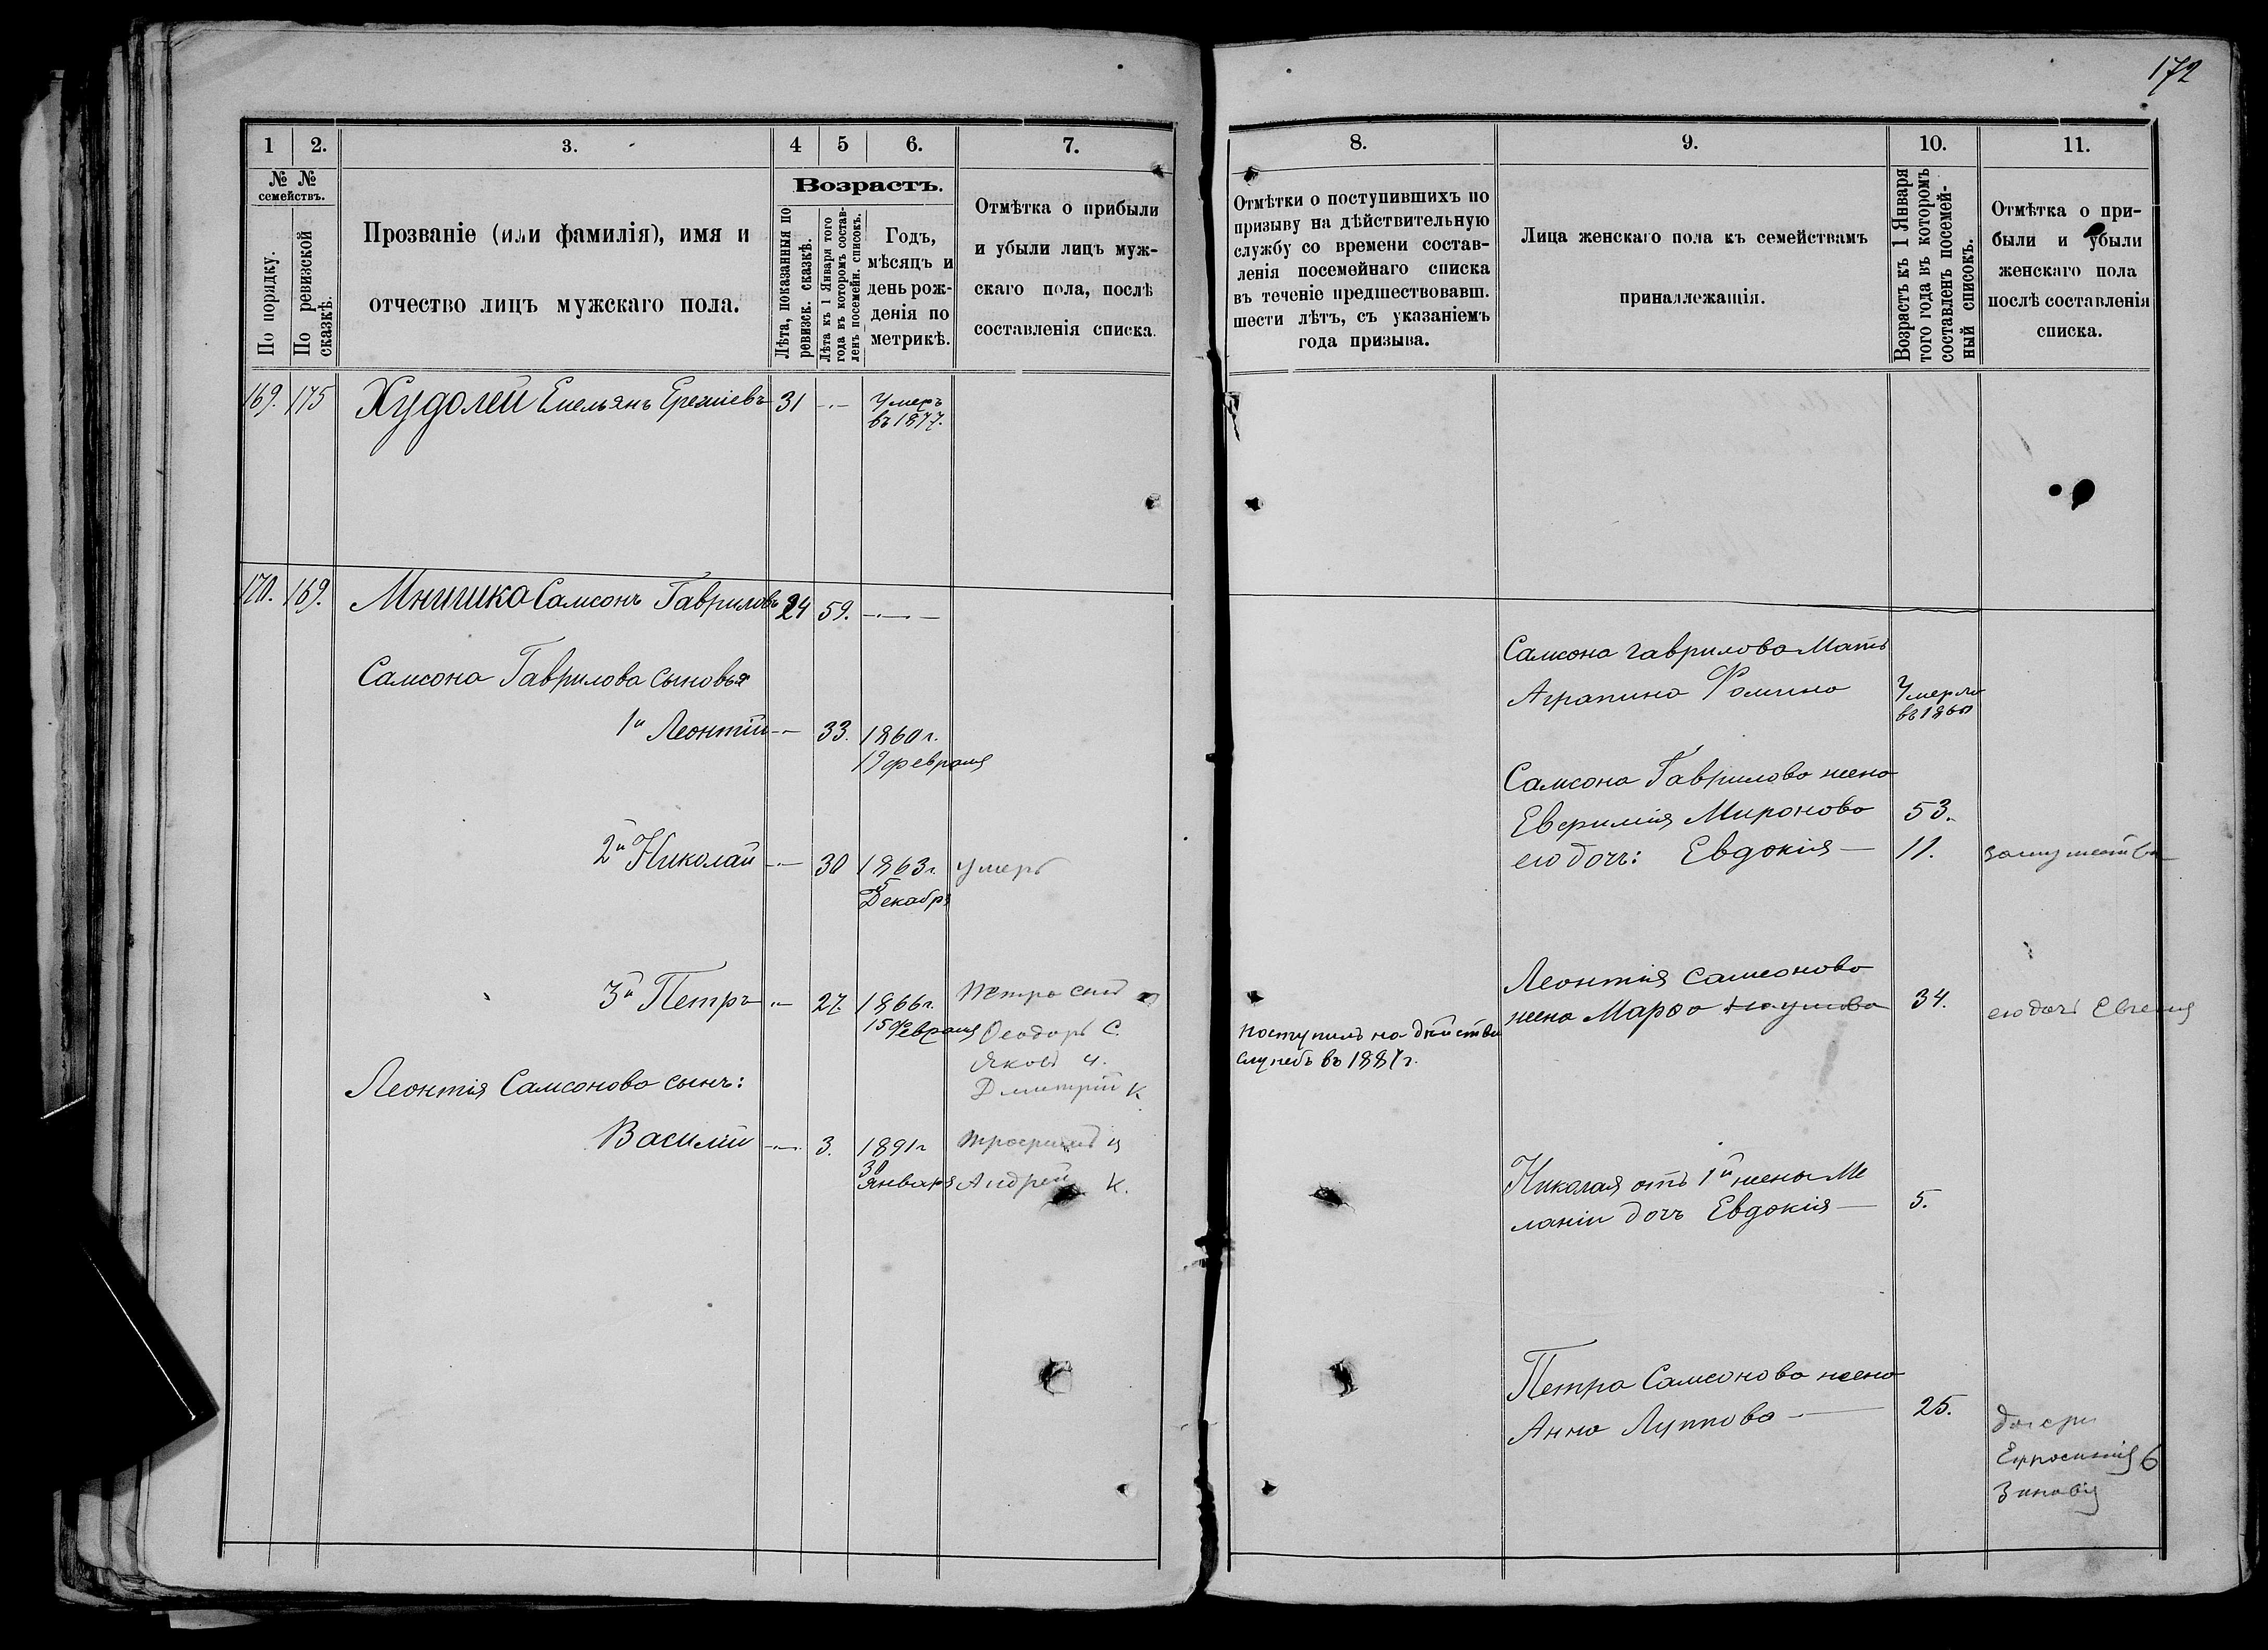 172
1 2. 3. 4 5 6. 7.
№ № семействъ.
По порядку.
По ревизской сказкѣ.
Прозваніе (или фамилія), имя и
отчество лицъ мужскаго пола.
Возрастъ.
Лѣта, показанныя по
ревизск. сказкѣ.
Лѣта къ 1 Января того
года въ которомъ состав-
ленъ посемейн. списокъ.
Годъ,
мѣсяцъ и
день рож-
денія по
метрикѣ.
Отмѣтка о прибыли
и убыли лицъ муж-
скаго пола, послѣ
составленія списка.
169. 175 Худолей Емельянъ Еремѣевъ 31 Умеръ
въ 1877.
170. 169. Мнишко Самсонъ Гавриловъ 24 59.
Самсона Гаврилова сыновья
1й Леонтій 33. 1860 г.
19 февраля
2й Николай 30 1863 г. умеръ
5
Декабря
3й Петръ 27 1866 г. Петра сынъ
15 Февраля Ѳеодоръ С.
Яковъ ч.
Дмитрій К
Леонтія Самсонова сынъ:
Василій 3. 1891 г Трофимъ ц
30
Января Андрей К.
8. 9. 10. 11.
Отмѣтки о поступившихъ по
призыву на дѣйствительную
службу со времени состав-
ленія посемейнаго списка
въ теченіе предшествовавш.
шести лѣтъ, съ указаніемъ
года призыва.
Лица женскаго пола къ семействамъ
принадлежащія.
Возрастъ къ 1 Января
того года въ которомъ
составленъ посемей-
ный списокъ.
Отмѣтка о при-
были и убыли
женскаго пола
послѣ составленія
списка.
Самсона Гаврилова Мать
Агрипина Фомина Умерла
въ 1860
Самсона Гаврилова жена
Евфимія Миронова 53.
его дочь: Евдокія 11. замужество
Леонтія Самсонова
жена Марѳа Наумова 34. его дочь Евгенія
Поступилъ на дѣйстви
службъ въ 1887 г.
Николая отъ 1й жены Ме
ланіи дочь Евдокія 5.
Петра Самсонова жена
Анна Луппова 25. дочери
Ефросинія 6
Зиновія